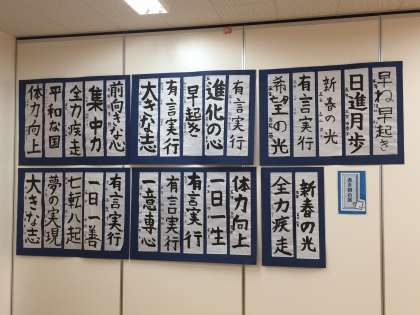 早ね早起き
日進月歩
新春の光
有言実行
希望の光
有言実行
進化の心
早起き
有言実行
大きな志
前向きな心
集中力
全力疾走
平和な国
体力向上
新春の光
全力疾走
体力向上
一日一生
有言実行
有言実行
一意専心
有言実行
一日一善
七転八起
夢の実現
大きな志